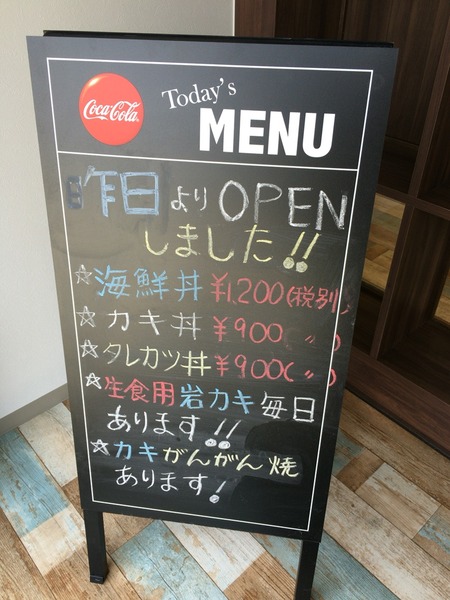 Coca-Cola
Today's
MENU
昨日よりOPEN
しました!!
☆海鮮丼 ¥1,200(税別)
☆カキ丼 ¥900( 〃 )
☆タレカツ丼 ¥900( 〃 )
☆生食用岩カキ毎日
あります!!
☆カキがんがん焼
あります!